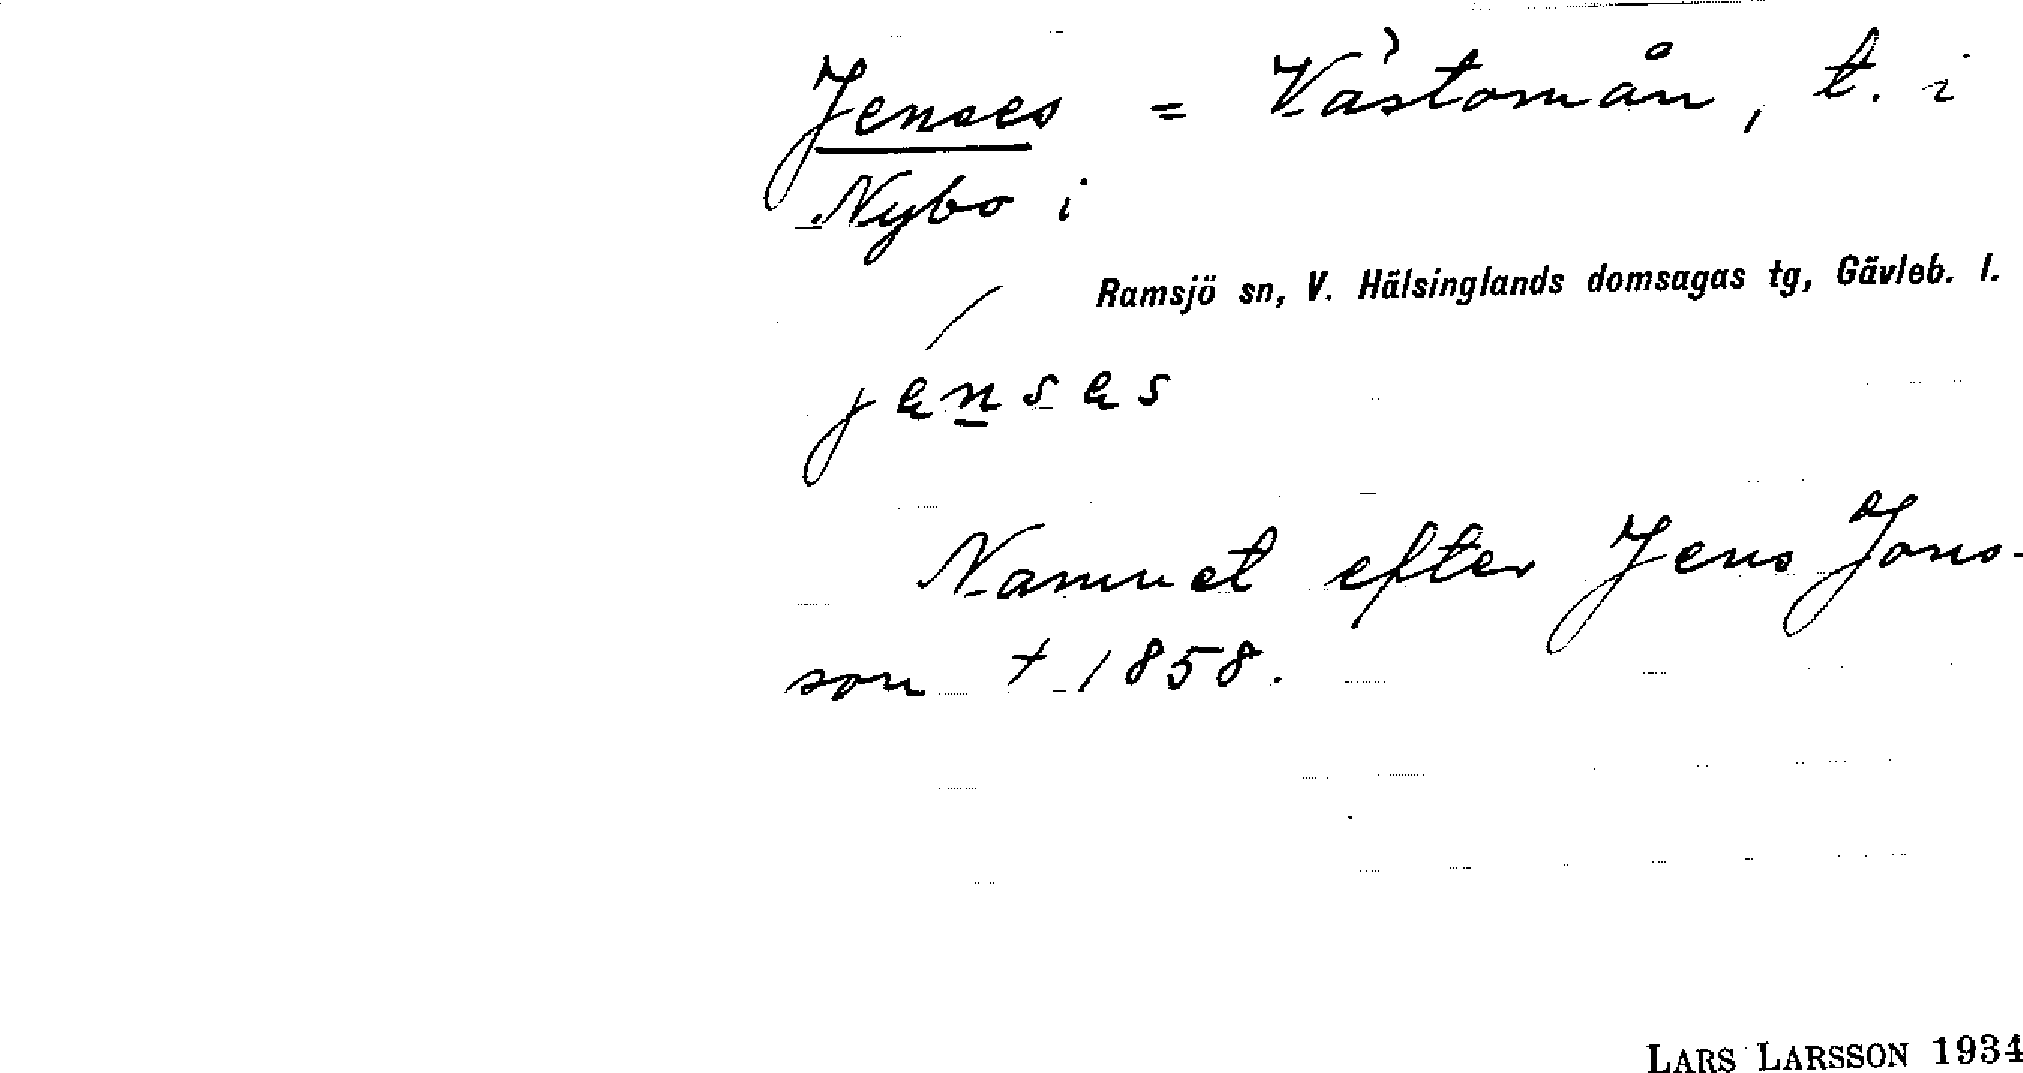 Jenses = Västomån, t. i
Nybo i
Ramsjö sn, V. Hälsinglands domsagas tg, Gävleb. l.
jenses
Namnet efter Jens Jons-
son + 1858.
LARS LARSSON 1934